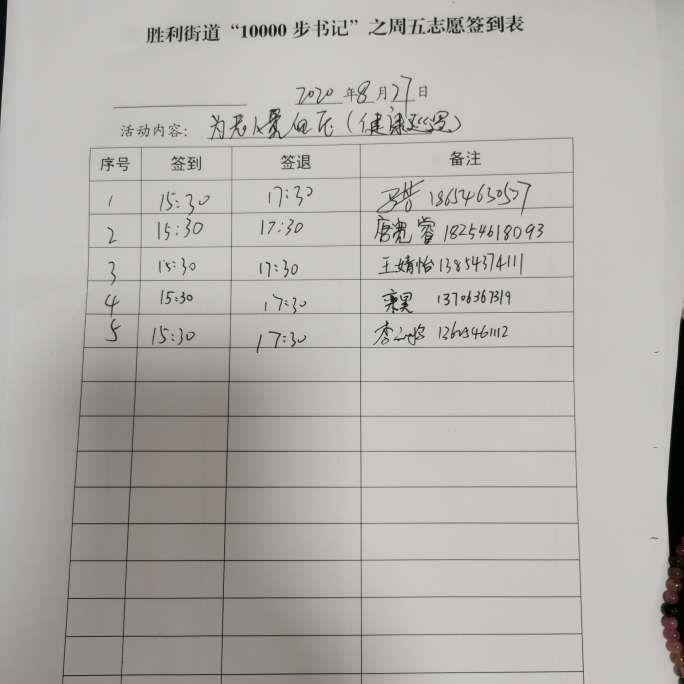 胜利街道“10000步书记”之周五志愿签到表
2020年8月27日
活动内容: 为老
序号 签到 签退 备注
1 15:30 17:30 18654630527
2 15:30 17:30 唐宽睿 18254618093
3 15:30 17:30 王婧怡 13854374111
4 15:30 17:30 13706367319
5 15:30 17:30 李